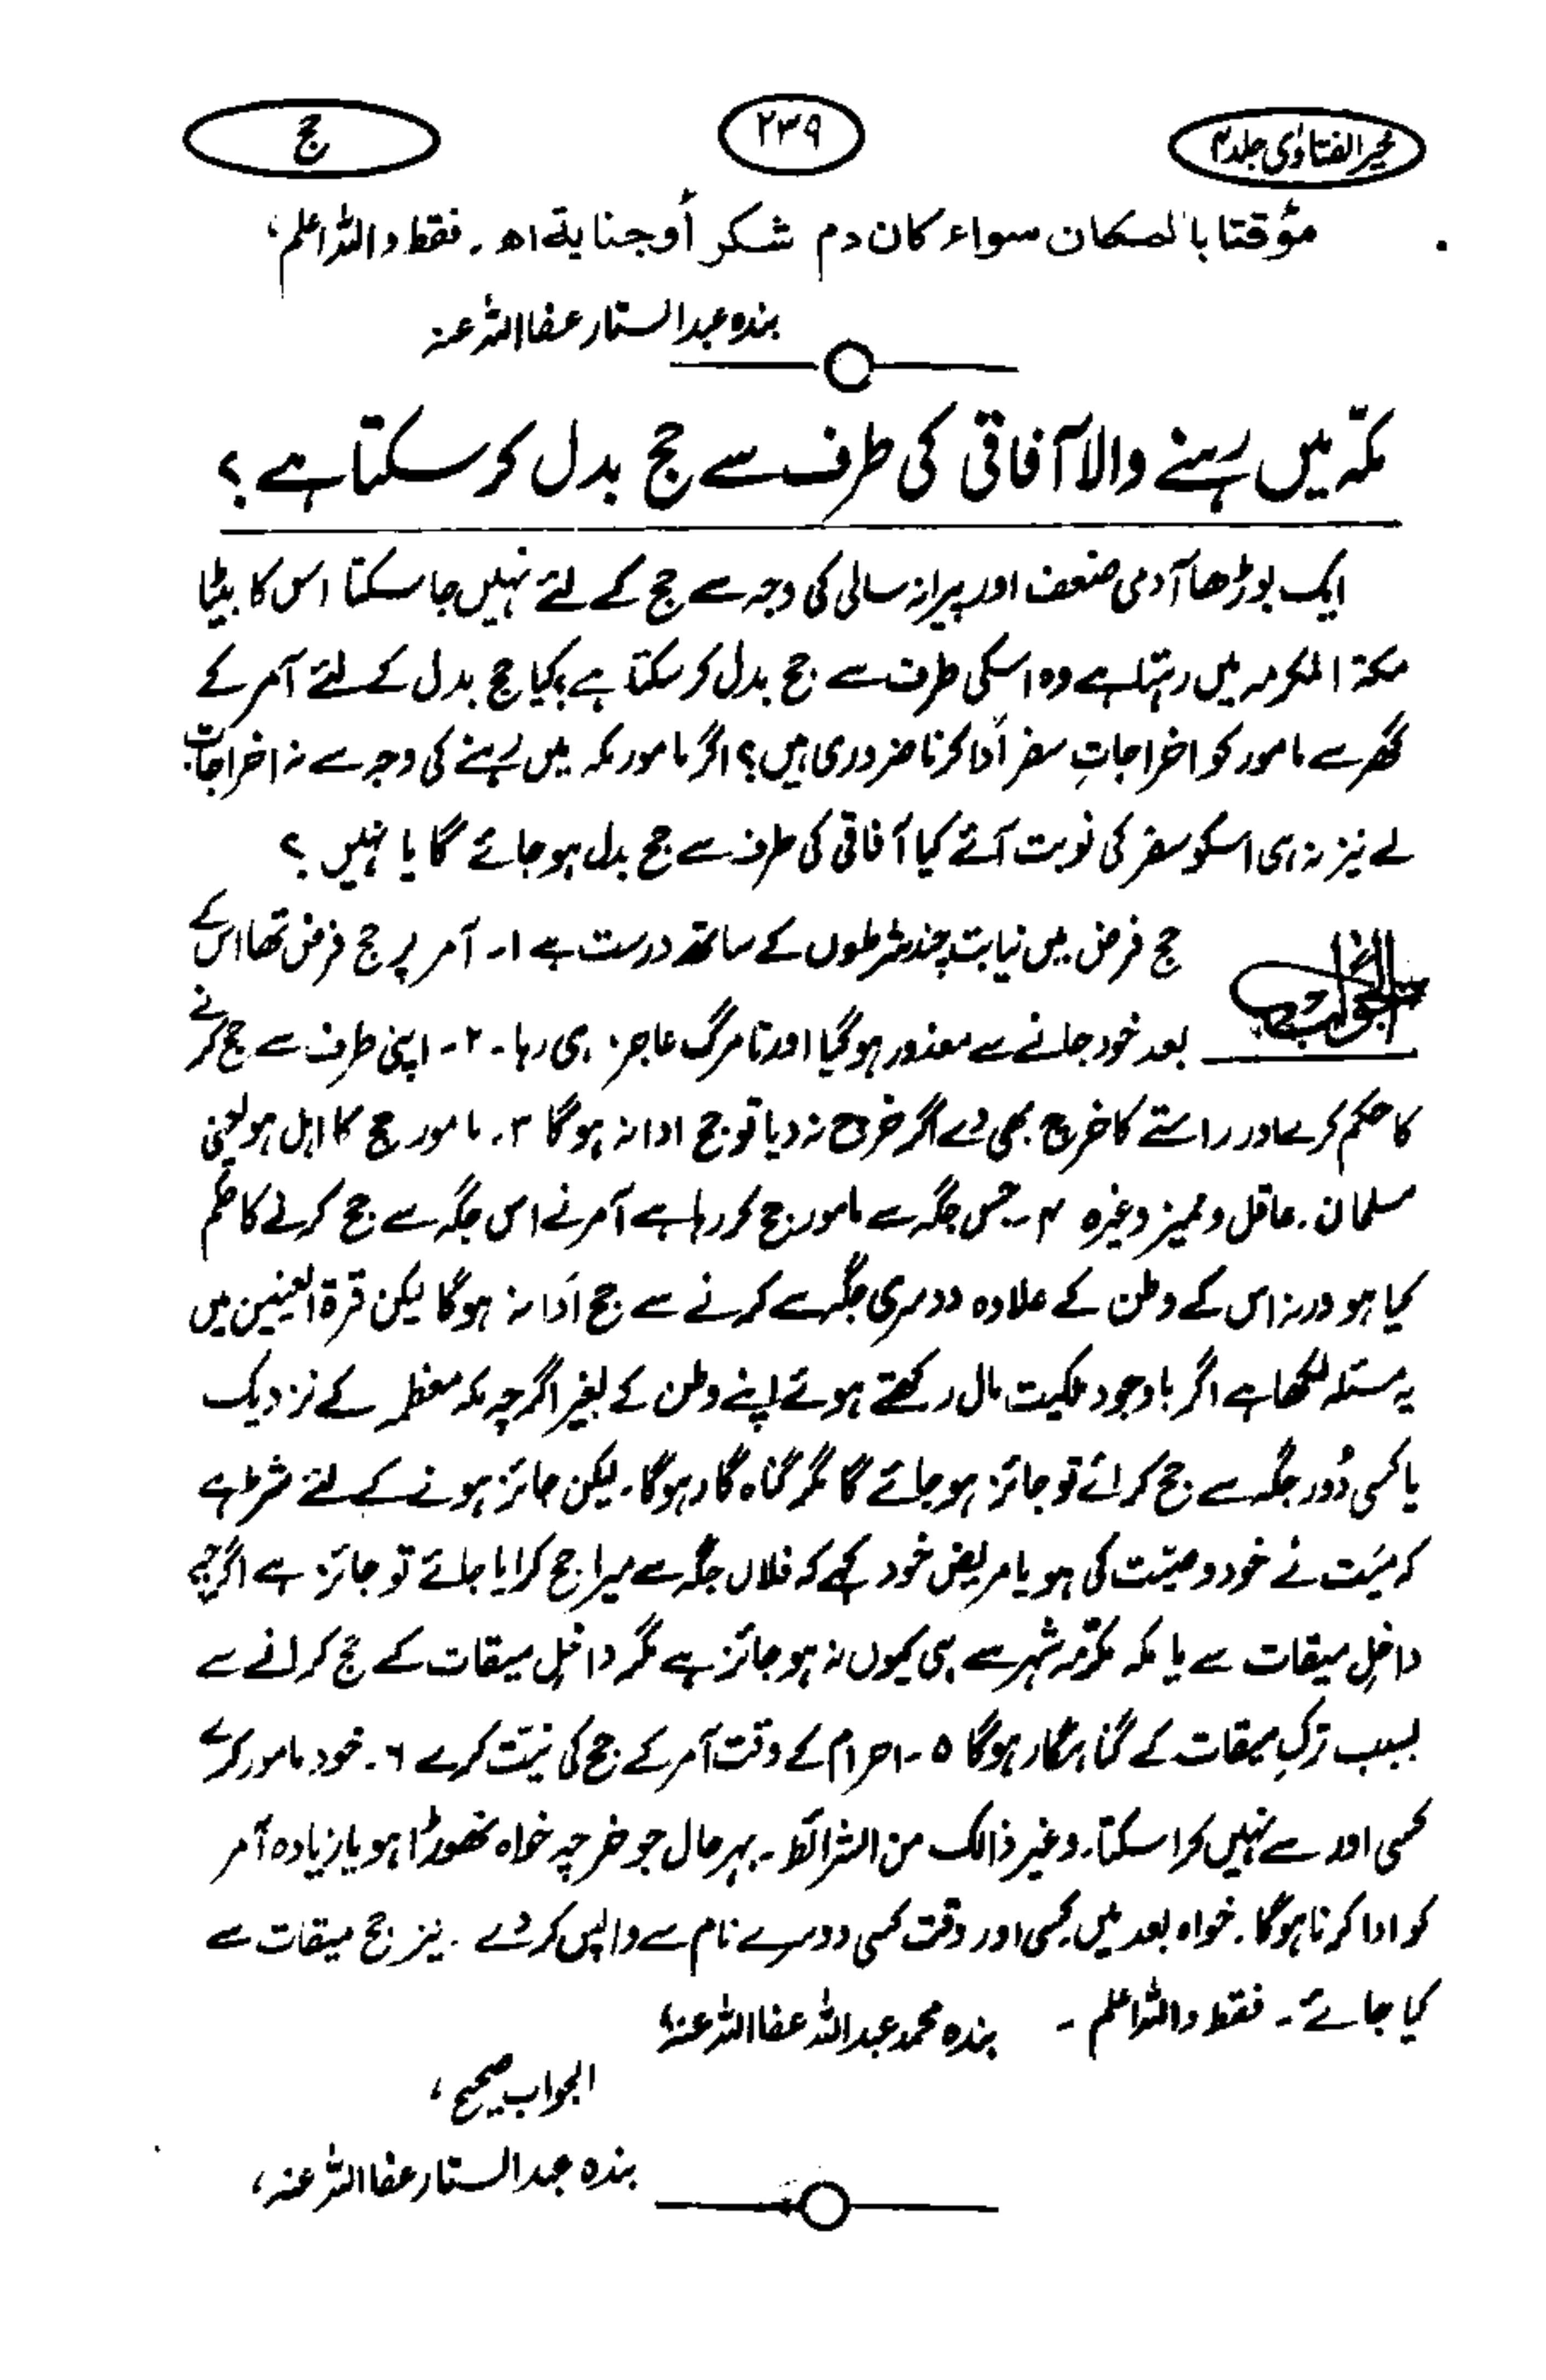 خیر الفتاوی جلد ۴
۲۳۹
حج
مؤقتا بالمکان سواء کان دم شکر أو جنایۃ اھ ۔ فقط واللہ اعلم،
بندہ عبدالستار عفا اللہ عنہ
مکّہ میں رہنے والا آفاقی کی طرف سے حج بدل کر سکتا ہے؟
ایک بوڑھا آدمی ضعف اور پیرانہ سالی کی وجہ سے حج کے لئے نہیں جا سکتا اس کا بیٹا
مکۃ المکرمہ میں رہتا ہے وہ اسکی طرف سے حج بدل کر سکتا ہے؟ کیا حج بدل کے لئے آمر کے
گھر سے مامور کو اخراجاتِ سفر اَدا کرنا ضروری ہیں؟ اگر مامور مکہ میں رہنے کی وجہ سے نہ اخراجات
لے نیز نہ ہی اسکو سفر کی نوبت آئے کیا آفاقی کی طرف سے حج بدل ہو جائے گا یا نہیں ؟
الجواب
حج فرض میں نیابت چند شرطوں کے ساتھ درست ہے ۱۔ آمر پر حج فرض تھا اس کے
بعد خود جانے سے معذور ہو گیا اور تا مرگ عاجز ہی رہا ۔ ۲۔ اپنی طرف سے حج کرنے
کا حکم کرے اور راستے کا خرچ بھی دے اگر خرچ نہ دیا تو حج ادا نہ ہوگا ۳۔ مامور حج کا اہل ہو یعنی
مسلمان ۔ عاقل و ممیز وغیرہ ۴ ۔ جس جگہ سے مامور حج کر رہا ہے آمر نے اس جگہ سے حج کرنے کا حکم
کیا ہو ورنہ اس کے وطن کے علاوہ دوسری جگہ سے کرنے سے حج اَدا نہ ہوگا لیکن قرۃ العینین میں
یہ مسئلہ لکھا ہے اگر باوجود ملکیت مال رکھتے ہوئے اپنے وطن کے بغیر اگرچہ مکہ معظمہ کے نزدیک
یا کسی دُور جگہ سے حج کرائے تو جائز ہو جائے گا مگر گناہ گار ہوگا ۔ لیکن جائز ہونے کے لئے شرط ہے
کہ میّت نے خود وصیّت کی ہو یا مریض خود کہے کہ فلاں جگہ سے میرا حج کرایا جائے تو جائز ہے اگرچہ
داخلِ میقات سے یا مکہ مکرّمہ شہر سے ہی کیوں نہ ہو جائز ہے مگر داخلِ میقات کے حج کرانے سے
بسبب ترکِ میقات کے گناہگار ہوگا ۵ ۔ احرام کے وقت آمر کے حج کی نیّت کرے ۶ ۔ خود مامور کرے
کسی اور سے نہیں کرا سکتا ۔ وغیر ذالک من الشرائط ۔ بہرحال جو خرچہ خواہ تھوڑا ہو یا زیادہ آمر
کو ادا کرنا ہوگا ۔ خواہ بعد میں کسی اور وقت کسی دوسرے نام سے واپس کر دے ۔ نیز حج میقات سے
کیا جائے ۔ فقط واللہ اعلم ۔ بندہ محمد عبداللہ عفا اللہ عنہ،
الجواب صحیح،
بندہ عبدالستار عفا اللہ عنہ،